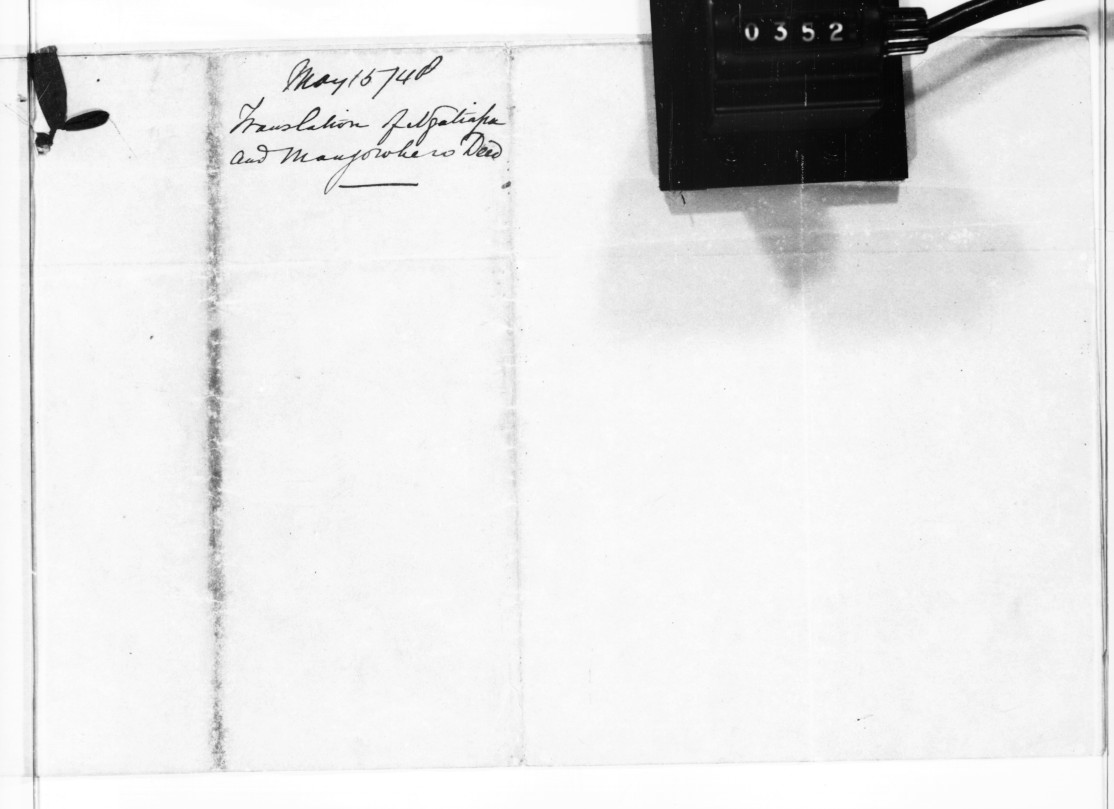 0352
May 15/48
Translation of Ngatiapa
and Mangowhero Deed